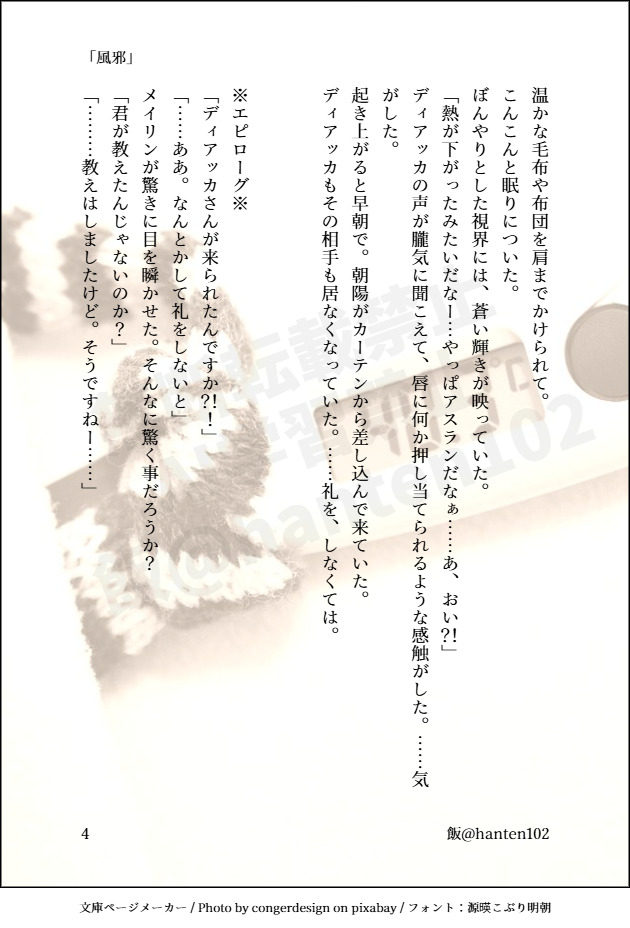 「風邪」
温かな毛布や布団を肩までかけられて。
こんこんと眠りについた。
ぼんやりとした視界には、蒼い輝きが映っていた。
「熱が下がったみたいだなー…やっぱアスランだなぁ……あ、おい?!」
ディアッカの声が朧気に聞こえて、唇に何か押し当てられるような感触がした。……気
がした。
起き上がると早朝で。朝陽がカーテンから差し込んで来ていた。
ディアッカもその相手も居なくなっていた。……礼を、しなくては。
※エピローグ※
「ディアッカさんが来られたんですか?!！」
「……ああ。なんとかして礼をしないと」
メイリンが驚きに目を瞬かせた。そんなに驚く事だろうか？
「君が教えたんじゃないのか？」
「………教えはしましたけど。そうですねー……」
転載禁止
飯@hanten102
4
飯@hanten102
文庫ページメーカー / Photo by congerdesign on pixabay / フォント：源暎こぶり明朝